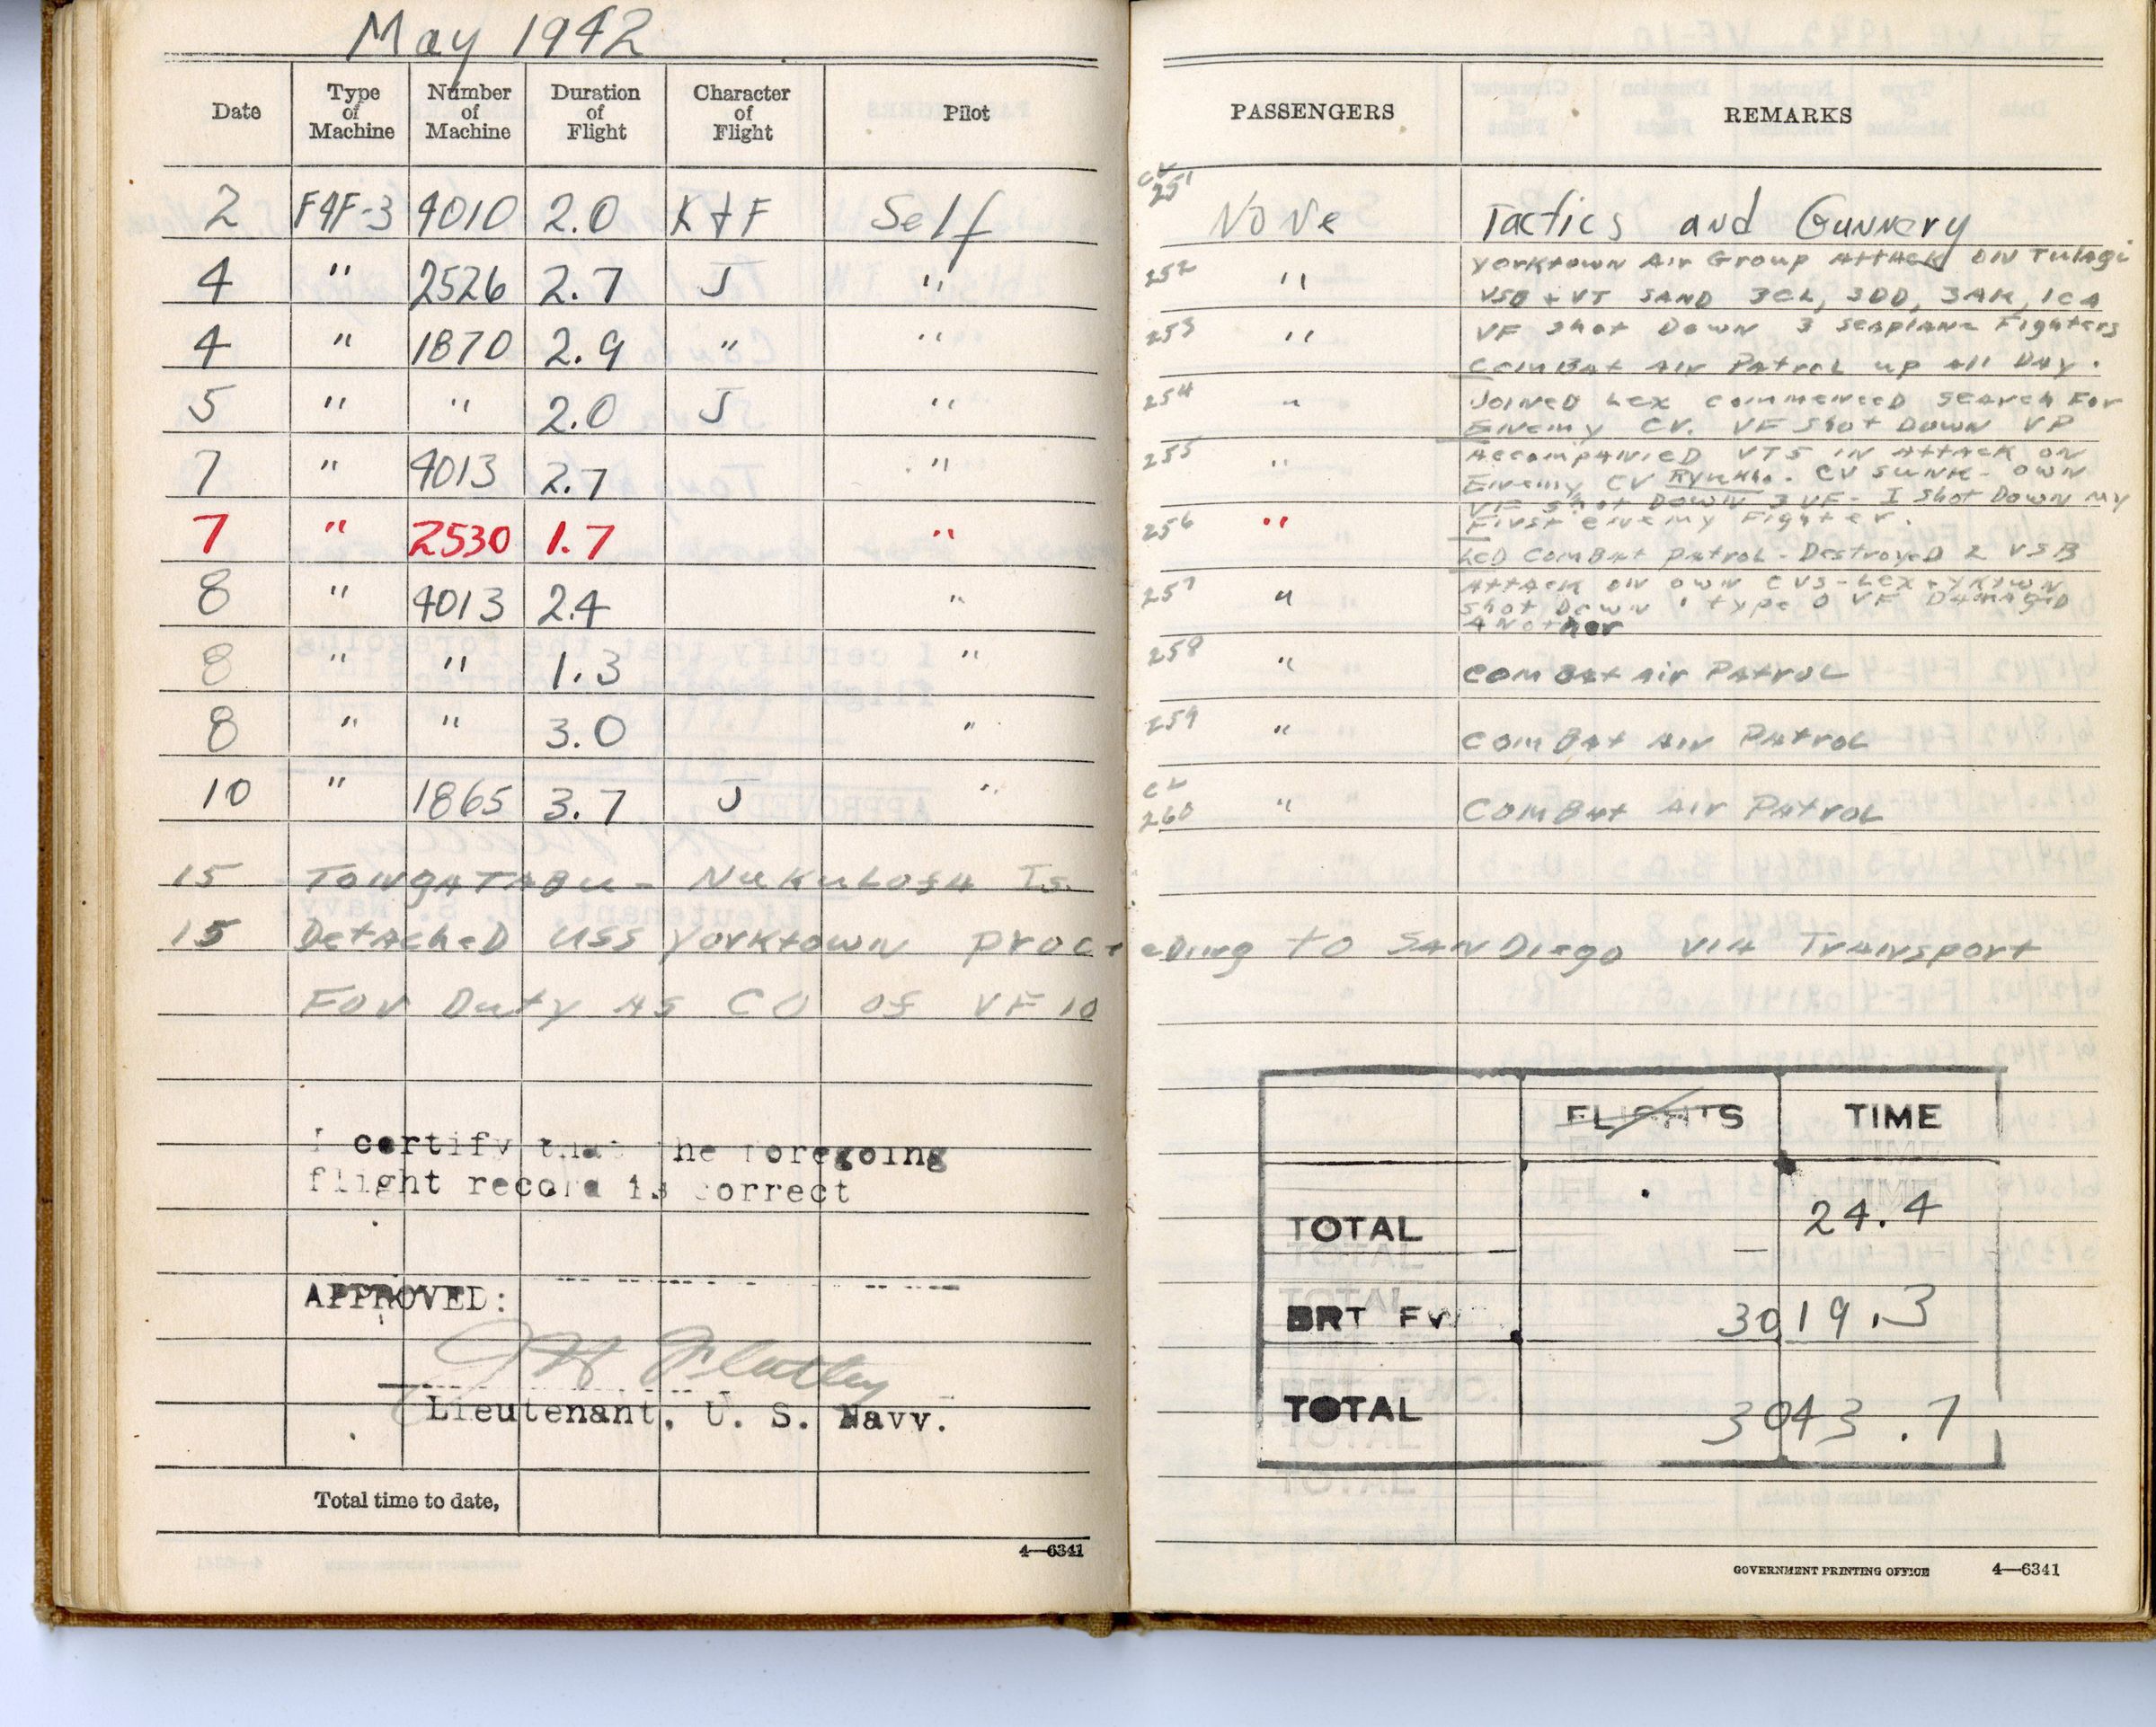 May 1942
Date Type of Machine Number of Machine Duration of Flight Character of Flight Pilot
2 F4F-3 4010 2.0 K+F Self
4 " 2526 2.7 J "
4 " 1870 2.9 " "
5 " " 2.0 J "
7 " 4013 2.7 "
7 " 2530 1.7 "
8 " 4013 2.4 "
8 " " 1.3 "
8 " " 3.0 "
10 " 1865 3.7 J "
15 TONGATABU - NUKULOFA Is.
15 Detached USS Yorktown proceeding to San Diego via Transport
For Duty as CO of VF 10
I certify that the foregoing
flight record is correct
APPROVED:
JH Flatley
Lieutenant, U. S. Navy.
Total time to date,
4—6341
PASSENGERS REMARKS
CV
251 None Tactics and Gunnery
252 " Yorktown Air Group Attack on Tulagi
3CL, 3DD, 3AK, 1CA
253 " VF shot Down 3 seaplane Fighters
Combat Air Patrol up all Day.
254 " Joined Lex commenced search For
Enemy CV. VF shot Down VP
255 " Accompanied VTS in attack on
Enemy CV CV sunk - own
VF shot Down 3 VF - I shot Down my
256 " First enemy Fighter.
Led Combat Patrol - Destroyed 2 VSB
257 " Attack on own CVS - Lex + Yktown
shot Down 1 type O VF Damaged
Another
258 " Combat Air Patrol
259 " Combat Air Patrol
CV
260 " Combat Air Patrol
FLIGHTS TIME
TOTAL 24.4
BRT FW 3019.3
TOTAL 3043.7
GOVERNMENT PRINTING OFFICE 4—6341